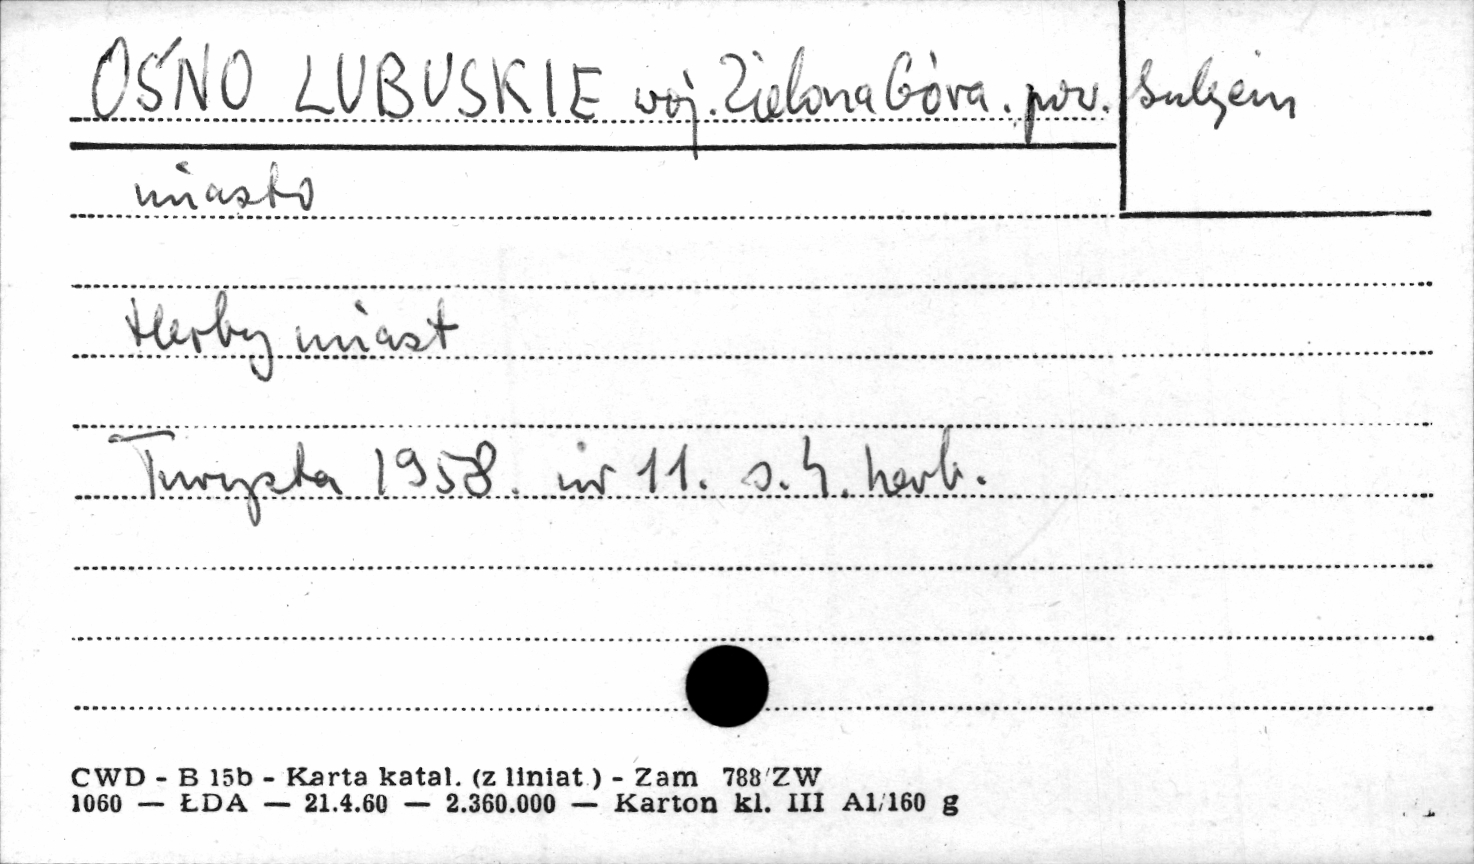 OŚNO LUBUSKIE woj. Zielona Góra. pow. Sulęcin
miasto
Herby miast
Turysta 1958. nr 11. s. 4. herb.
CWD - B 15b - Karta katal. (z liniat.) - Zam 788/ZW
1060 — ŁDA — 21.4.60 — 2.360.000 — Karton kl. III A1/160 g